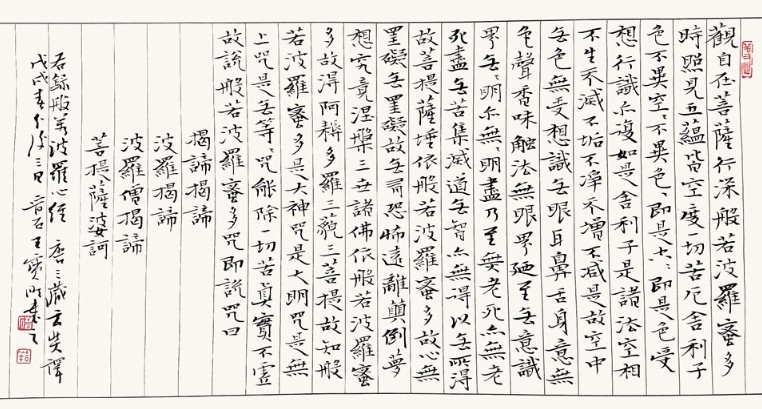 觀自在菩薩行深般若波羅蜜多
時照見五蘊皆空度一切苦厄舍利子
色不異空〻不異色〻即是空〻即是色受
想行識亦復如是舍利子是諸法空相
不生不滅不垢不淨不增不減是故空中
无色無受想識无眼耳鼻舌身意無
色聲香味觸法無眼界廼至无意識
界无〻明亦無〻明盡乃至無老死亦無老
死盡无苦集滅道无智亦無得以无所得
故菩提薩埵依般若波羅蜜多故心無
罣礙无罣礙故无有恐怖遠離顛倒夢
想究竟涅槃三世諸佛依般若波羅蜜
多故得阿耨多羅三藐三菩提故知般
若波羅蜜多是大神咒是大明咒是無
上咒是无等〻咒能除一切苦真實不虛
故說般若波羅蜜多咒即說咒曰
揭諦揭諦
波羅揭諦
波羅僧揭諦
菩提薩婆訶
右錄般若波羅心經 唐三藏玄奘譯
戊戌春 三日 王寶 書